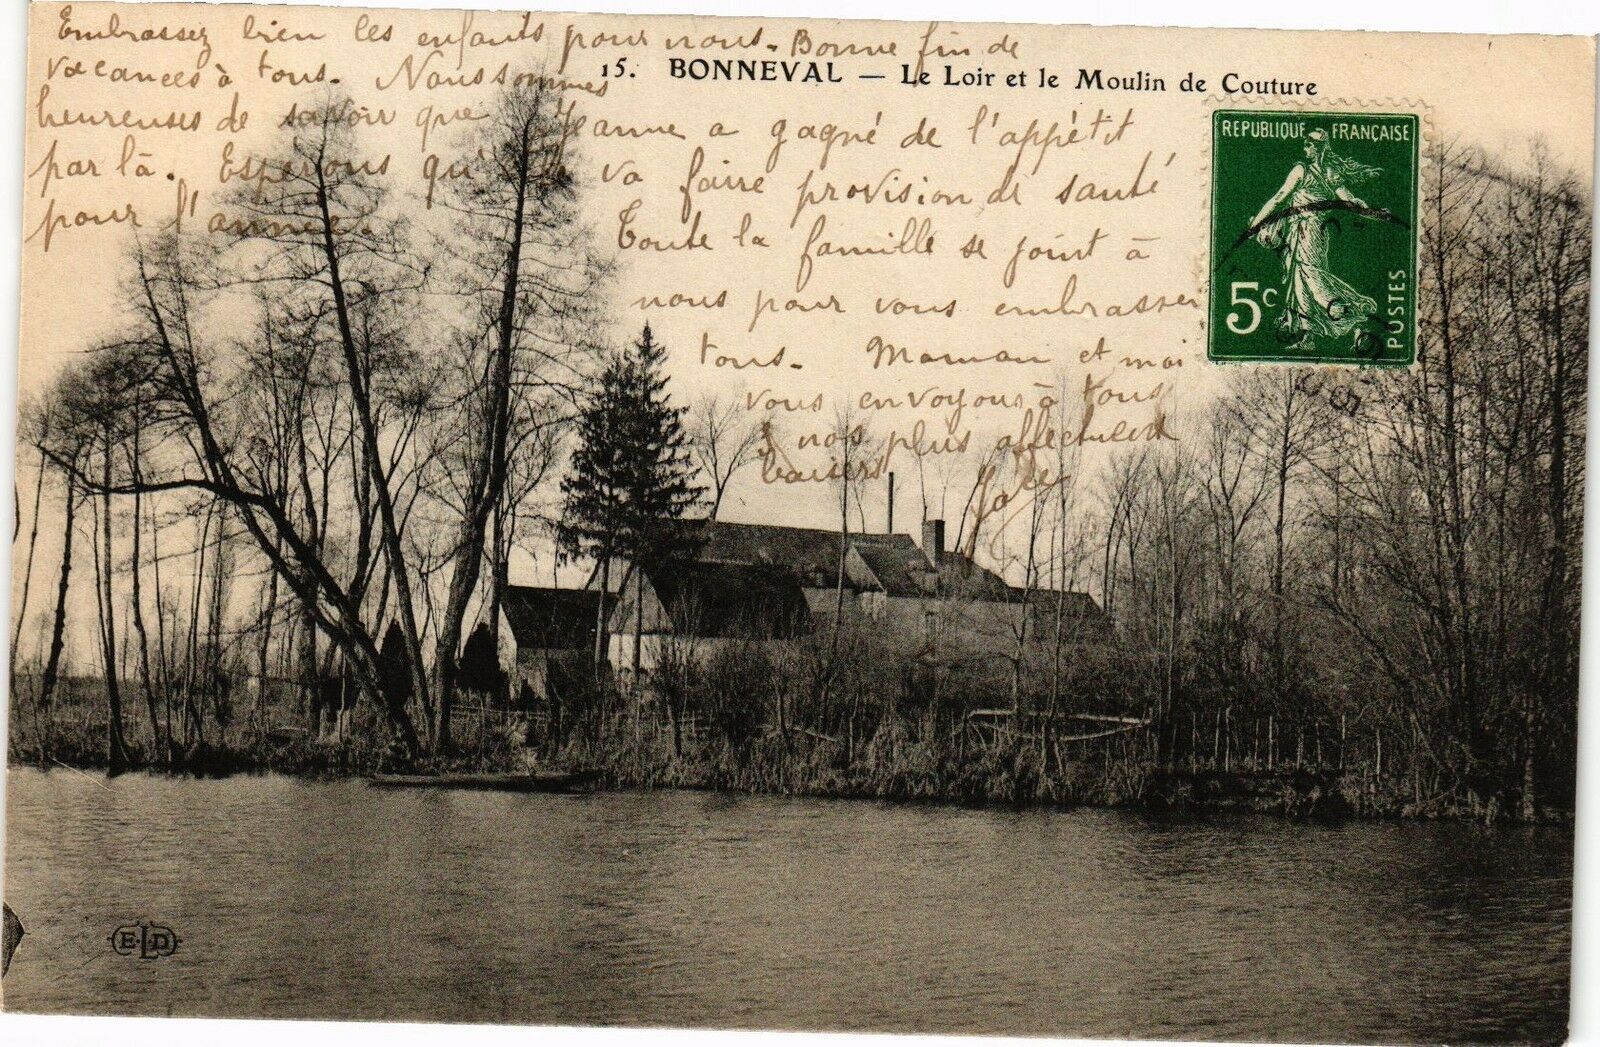 Embrassez bien les enfants pour nous. Bonne fin de
vacances à tous. Nous sommes
15. BONNEVAL — Le Loir et le Moulin de Couture
heureuses de savoir que Jeanne a gagné de l'appétit
par là. Espérons qu'elle va faire provision de santé
pour l'année.
Toute la famille se joint à
nous pour vous embrasser
tous. Maman et moi
vous envoyons à tous
nos plus affectueux
baisers
REPUBLIQUE FRANÇAISE
5c
POSTES
E.L.D